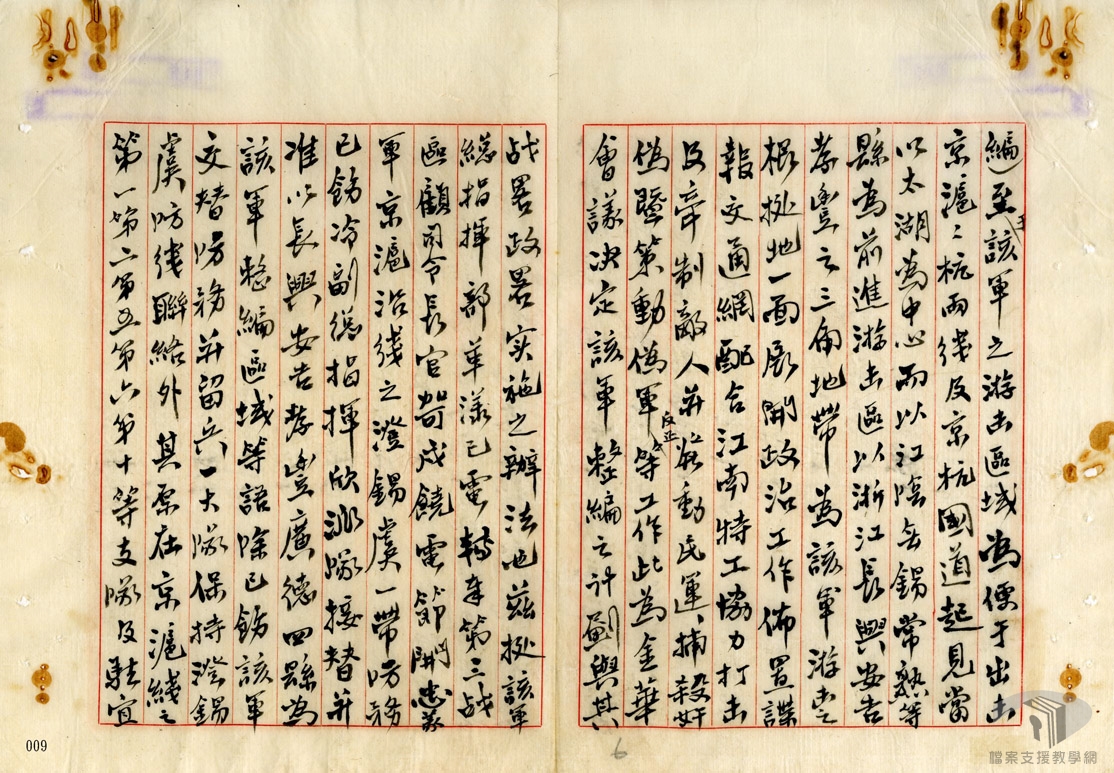 編至該軍之游击區域為便于出击
京滬滬杭兩线及京杭國道起見當
以太湖為中心而以江陰無錫常熟等
縣為前進游击區以浙江長興安吉
孝豐之三角地帶為該軍游击
根挻地一面展開政治工作佈置諜
報交通網配合江南特工協力打击
及牽制敵人并發動民運、捕殺奸
偽暨策動偽軍反正等工作此為金華
會議決定該軍整編之計劃與其
战畧政畧实施之辦法也茲挻該軍
總指揮部革漾巳電轉奉第三战
區顧司令長官荷戍饒電節開忠義
軍京滬沿綫之澄錫虞一帶防務
已飭冷副總指揮欣派隊接替并
准以長興安吉孝豐廣德四縣為
該軍整編區域等語除已飭該軍
交替防務并留兵一大隊保持澄錫
虞防綫聯絡外其原在京滬綫之
第一第二第五第六第十等支隊及駐宜
009
6
檔案支援教學網